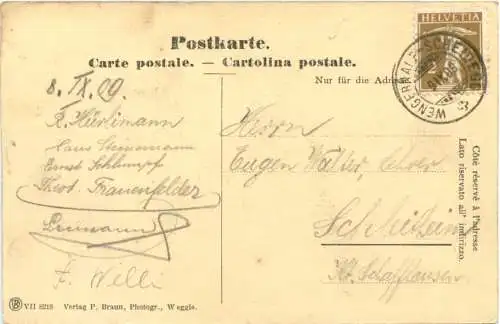 Postkarte.
Carte postale. — Cartolina postale.
Nur für die Adresse
HELVETIA
WENGERNALP
8. IX. 09.
R. Hürlimann
Hans
Ernst Schlumpf
Theod. Frauenfelder
F. Willi
Herrn
Eugen Walter, Lehrer
Schleitheim
Kt. Schaffhausen
Côté réservé à l'adresse
Lato riservato all' indirizzo.
VII 8218 Verlag P. Braun, Photogr., Weggis.